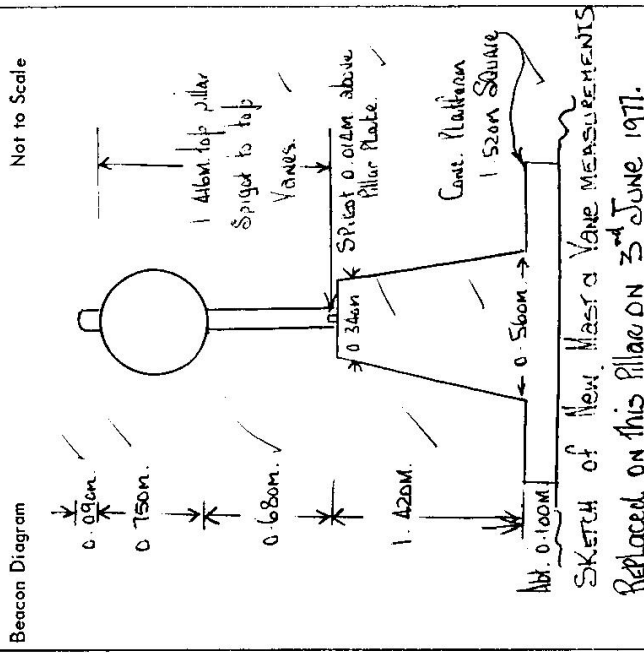 Beacon Diagram
Not to Scale
0.090m.
0.750m.
0.680m.
1.420M.
Abt. 0.100M
1.416M. top pillar
Spigot to top
Vanes.
SPigot 0.014M. above
Pillar Plate.
0.340m
0.560m.
Conc. Platform
1.520m Square
SKETCH of New Mast & Vane MEASUREMENTS
Replaced ON this Pillar ON 3rd June 1977.